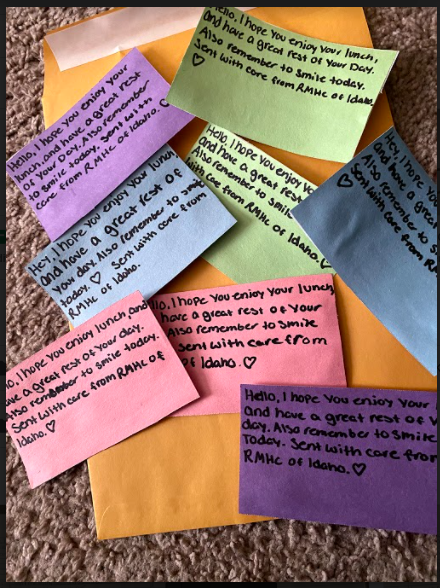 Hello, I hope you enjoy your lunch,
and have a great rest of your Day.
Also remember to smile today.
Sent with care from RMHC of Idaho.
♡
Hello, I hope you enjoy your
lunch, and have a great rest
of your Day. Also remember
to smile today. Sent with
care from RMHC of Idaho. ♡
Hello, I hope you enjoy
and have a great rest
Also remember to smile
with care from RMHC
of Idaho. ♡
Hey, I hope
and have a
Also remember to
♡ Sent with
care from
Hey, I hope you enjoy your lunch,
and have a great rest of
your day. Also remember to smile
today. ♡ Sent with care from
RMHC of Idaho.
I hope you enjoy your lunch,
have a great rest of your
Also remember to smile
Sent with care from
of Idaho. ♡
I hope you enjoy lunch and
have a great rest of your day.
Also remember to smile today.
Sent with care from RMHC of
Idaho. ♡
Hello, I hope you enjoy your
and have a great rest of
day. Also remember to smile
Today. Sent with care from
RMHC of Idaho. ♡